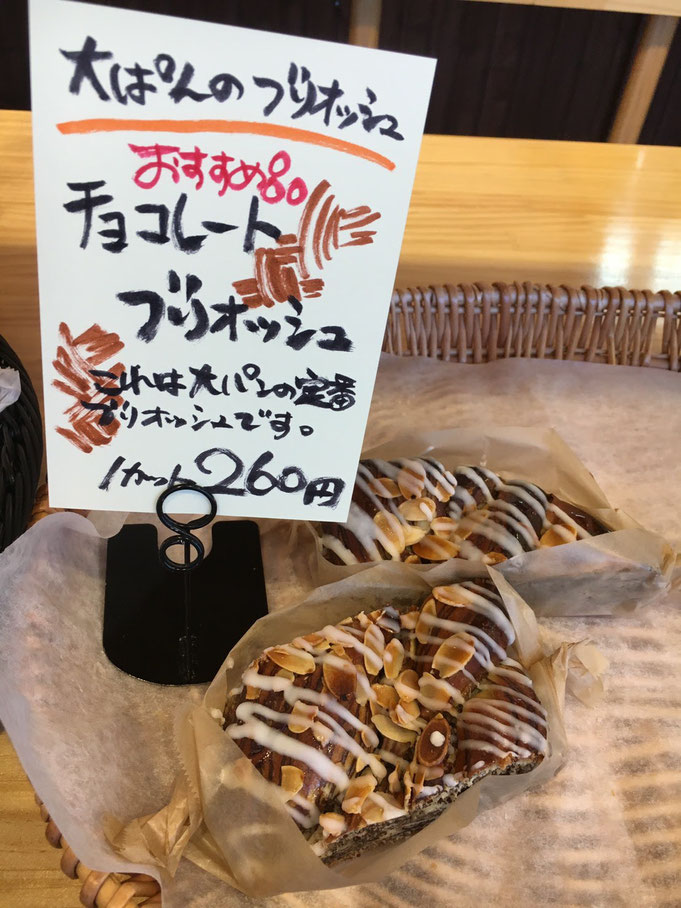 大ぱんのブリオッシュ
おすすめ品
チョコレート
ブリオッシュ
これは大パンの定番
ブリオッシュです。
1カット260円